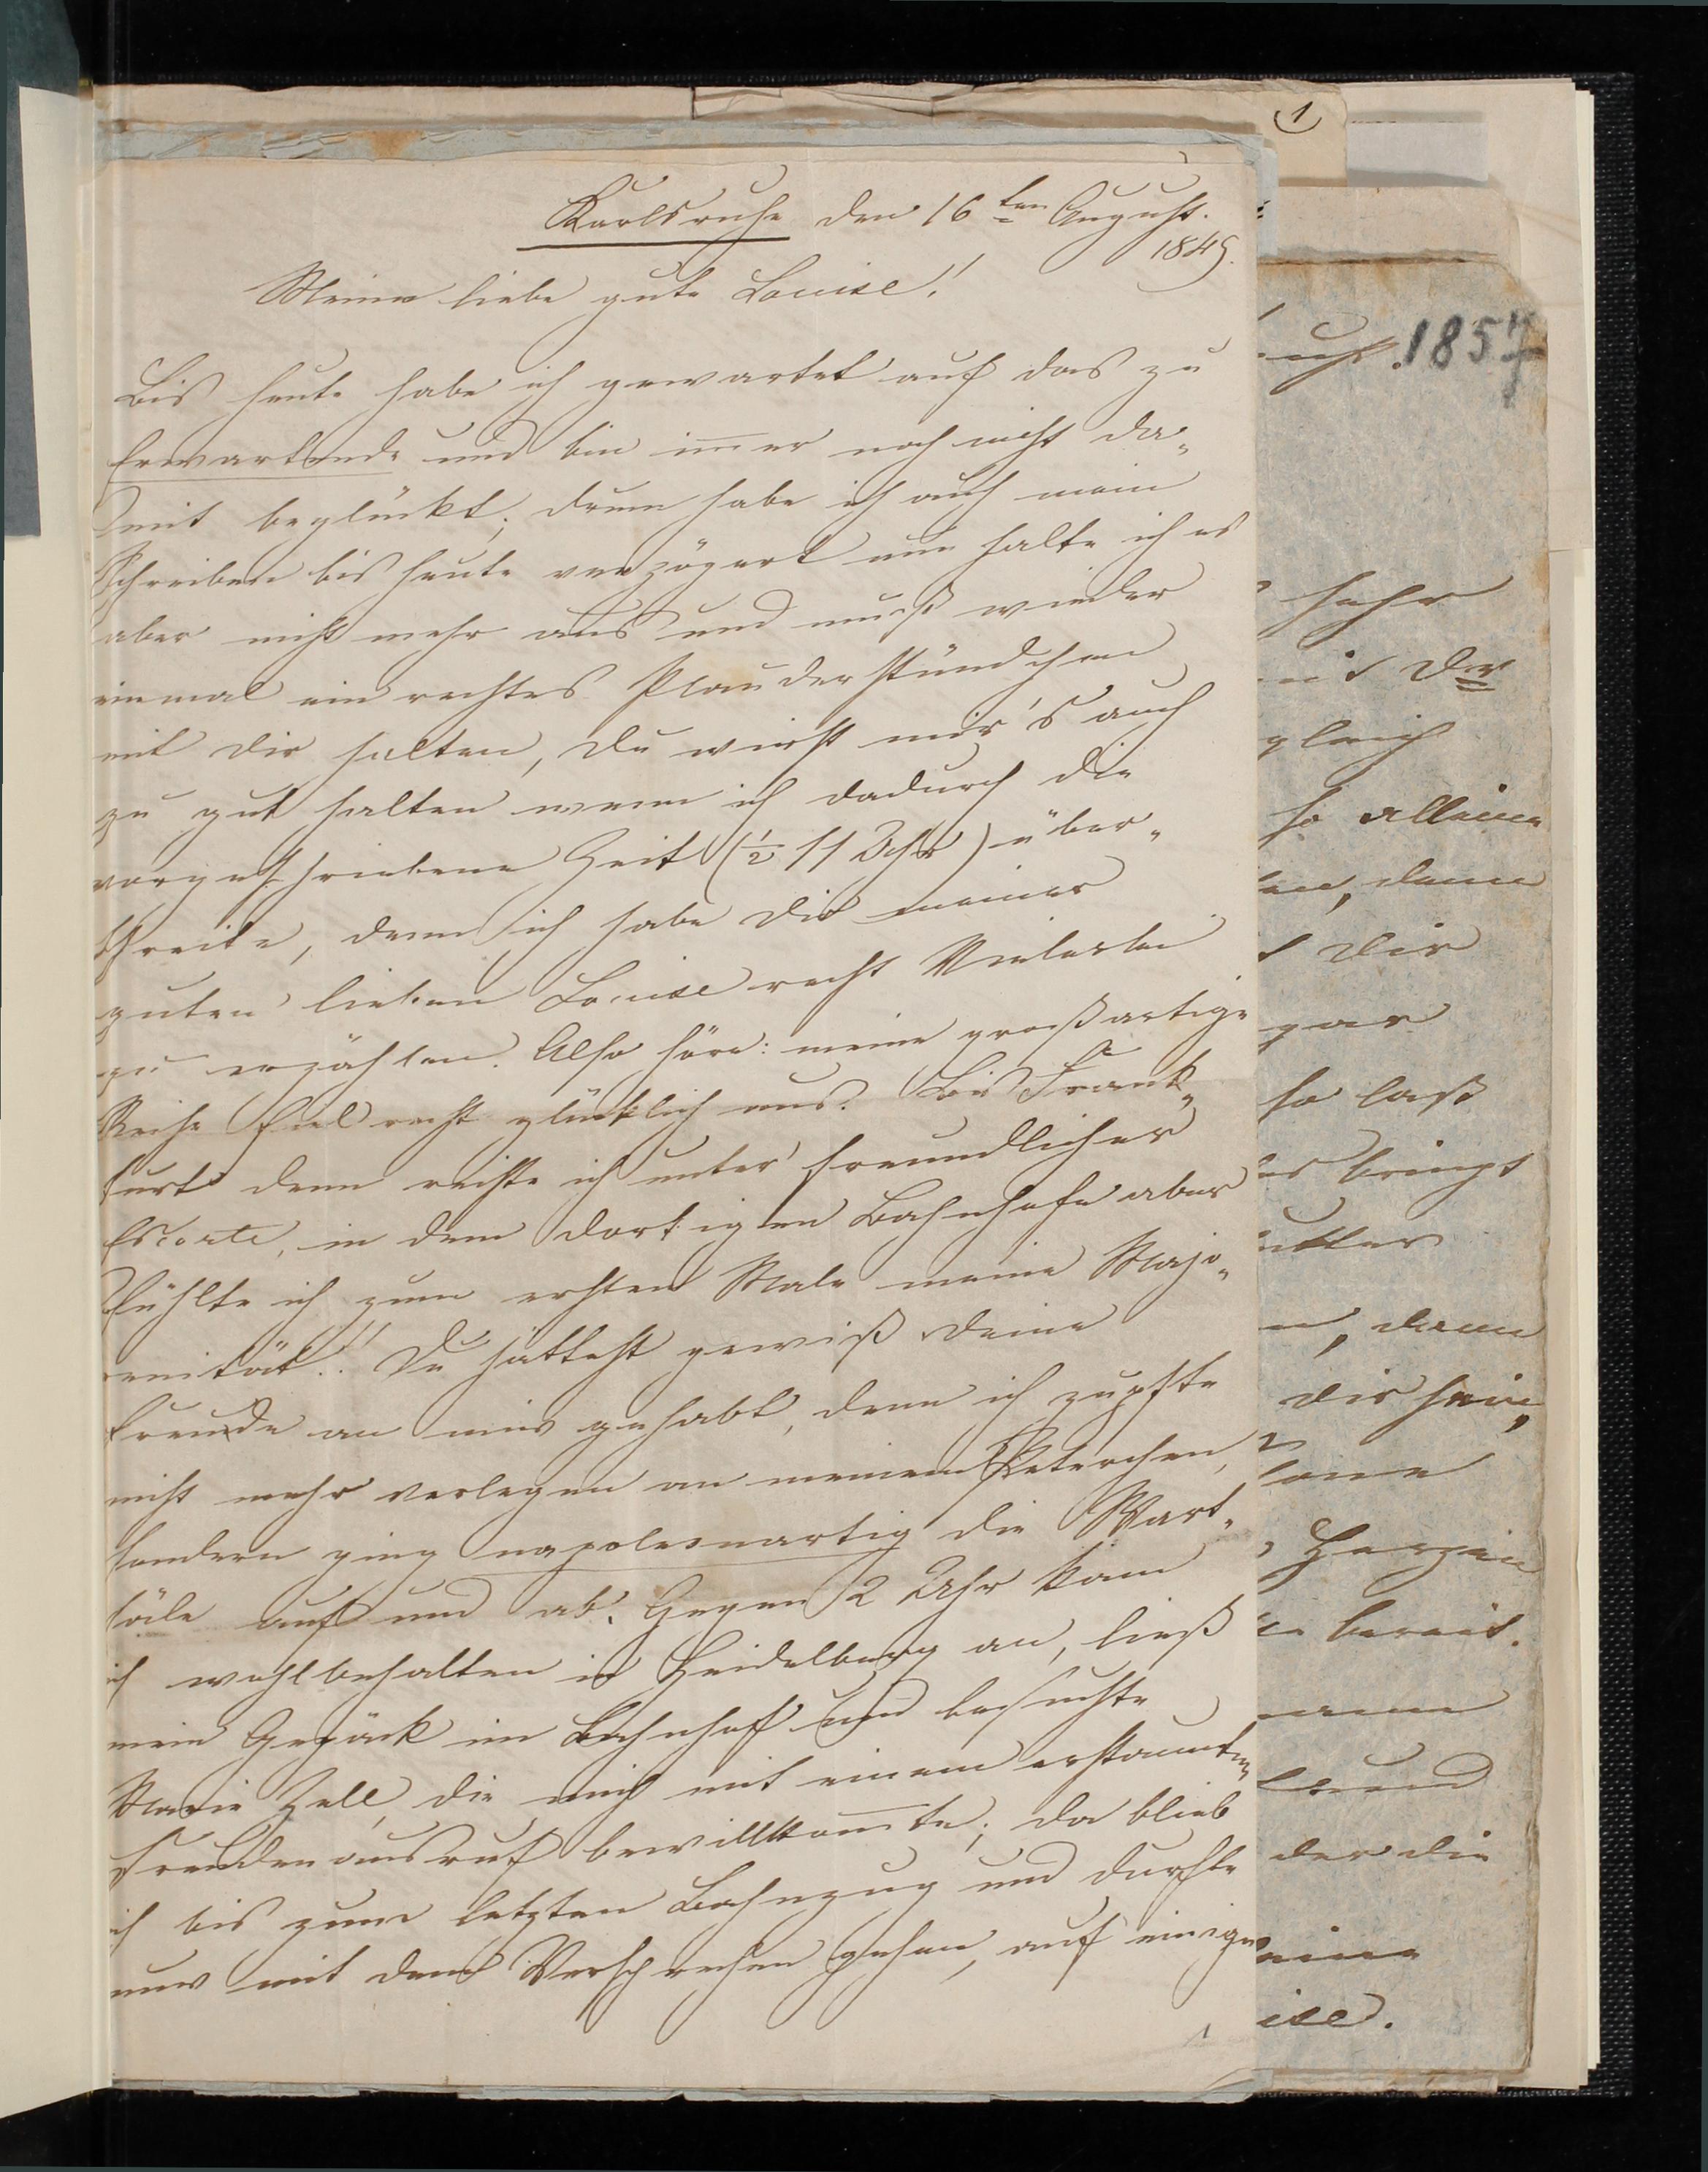 1
Karlsruhe den 16ten August.
1849.
Meine liebe gute Louise!
Bis heute habe ich gewartet auf das zu
Erwartende und bin im̅er noch nicht da„
mit beglückt; drum habe ich auch mein
Schreiben bis heute verzögert nun halte ich es
aber nicht mehr aus und muß wieder
einmal ein rechtes Plauderstündchen
mit dir halten, du wirst mir's auch
zu gut halten wenn ich dadurch die
vorgeschriebene Zeit (½ 11 Uhr) über„
schreite, denn ich habe dir meiner
guten lieben Louise recht Vielerlei
zu erzählen. Also höre: meine großartige
Reise fiel recht glücklich aus. Bis Frank„
furt denn reiste ich unter freundlicher
Escorte, in dem dortigen Bahnhofe aber
fühlte ich zum ersten Male meine Majo„
renität!! Du hättest gewiß deine
Freude an mir gehabt, denn ich zupfte
nicht mehr verlegen an meinem
sondern ging napoleonartig die Wart„
säle auf und ab. Gegen 2 Uhr kam
ich wohlbehalten in Heidelberg an, ließ
mein Gepäck im Bahnhof und besuchte
Marie Zell, die mich mit einem erstaunten
Freudenausruf bewillkom̅te; da blieb
ich bis zum letzten Bahnzug und durfte
nur mit dem Versprechen gehen, auf einige
1857
sehr
der
gleich
so allein
denn
dir
gar
so laß
bringt
denn
dir sein,
Herzen
bereit.
der die